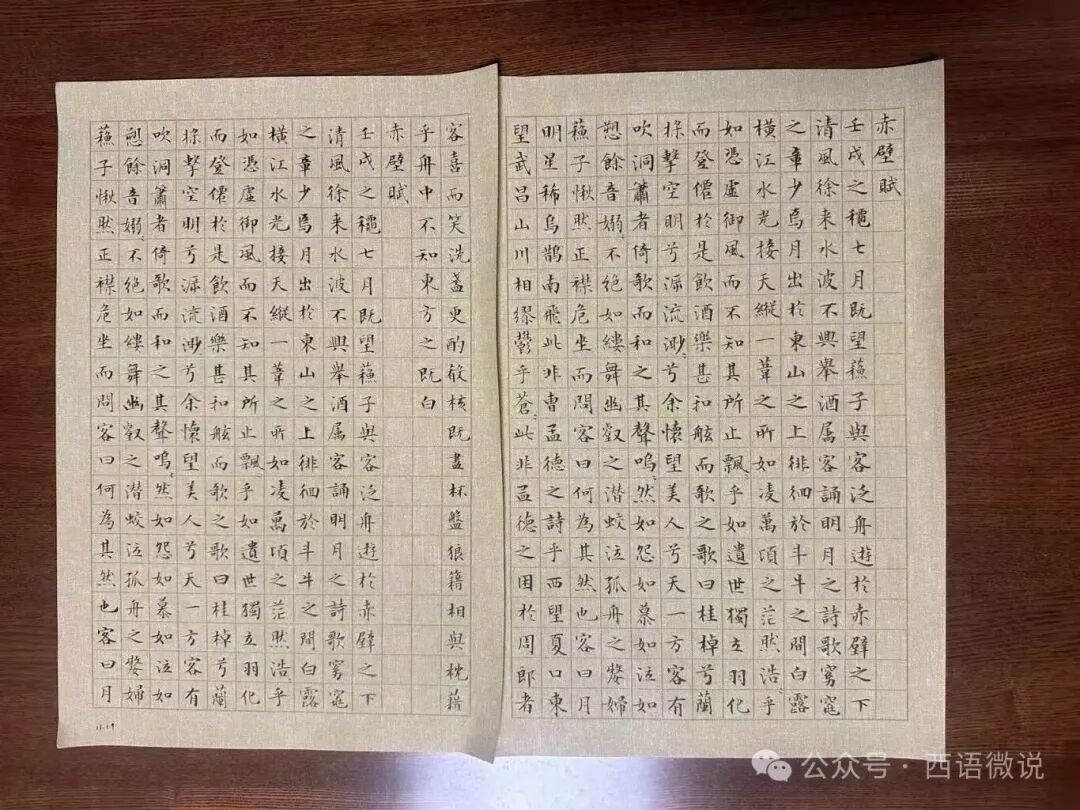 赤壁賦
壬戌之龝七月既望蘓子與客泛舟遊於赤壁之下
清風徐来水波不興舉酒属客誦明月之詩歌窈窕
之章少焉月出於東山之上徘徊於斗牛之間白露
橫江水光接天縱一葦之所如凌萬頃之茫然浩〻乎
如憑虛御風而不知其所止飄〻乎如遺世獨立羽化
而登僊於是飲酒樂甚扣舷而歌之歌曰桂棹兮蘭
槳擊空明兮泝流渺〻兮余懷望美人兮天一方客有
吹洞簫者倚歌而和之其聲嗚〻然如怨如慕如泣如
愬餘音嫋〻不絶如縷舞幽壑之潜蛟泣孤舟之嫠婦
蘓子愀然正襟危坐而問客曰何為其然也客曰月
明星稀烏鵲南飛此非曹孟德之詩乎西望夏口東
望武昌山川相繆鬱乎蒼〻此非孟德之困於周郎者
客喜而笑洗盞更酌殽核既盡杯盤狼籍相與枕藉
乎舟中不知東方之既白
赤壁賦
壬戌之龝七月既望蘓子與客泛舟遊於赤壁之下
清風徐来水波不興舉酒属客誦明月之詩歌窈窕
之章少焉月出於東山之上徘徊於斗牛之間白露
橫江水光接天縱一葦之所如凌萬頃之茫然浩〻乎
如憑虛御風而不知其所止飄〻乎如遺世獨立羽化
而登僊於是飲酒樂甚扣舷而歌之歌曰桂棹兮蘭
槳擊空明兮泝流渺〻兮余懷望美人兮天一方客有
吹洞簫者倚歌而和之其聲嗚〻然如怨如慕如泣如
愬餘音嫋〻不絶如縷舞幽壑之潜蛟泣孤舟之嫠婦
蘓子愀然正襟危坐而問客曰何為其然也客曰月
11.19
公众号·西语微说